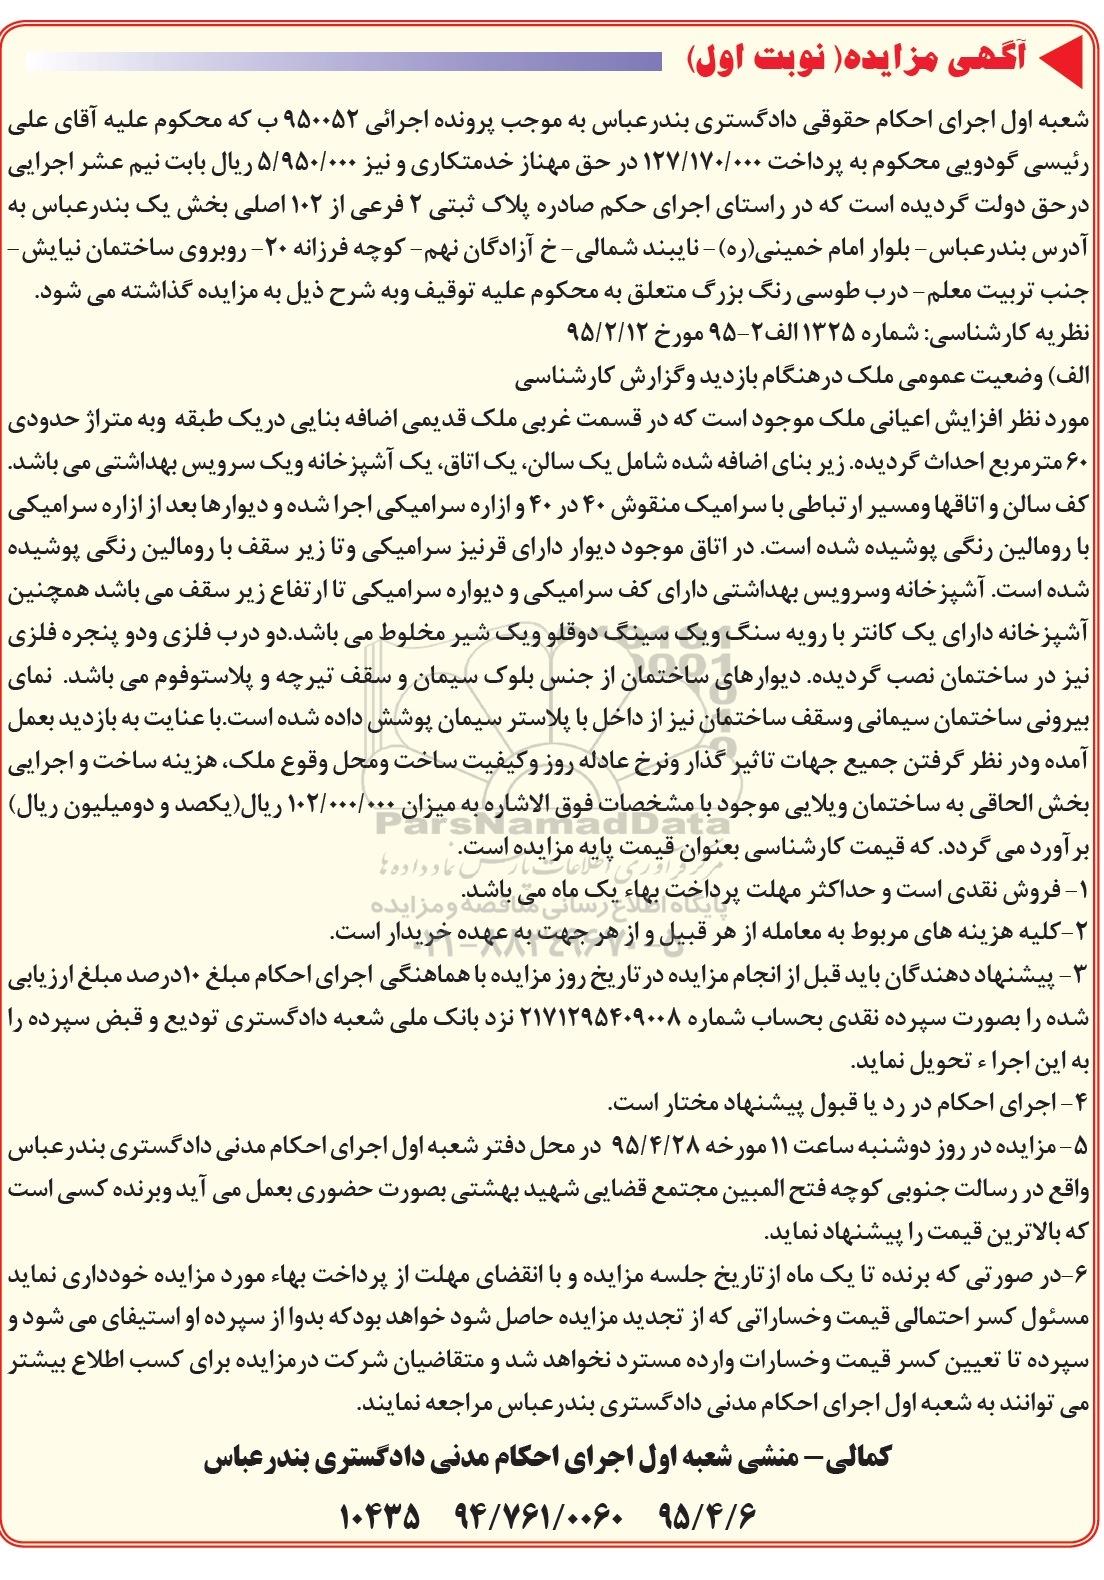 آگهی مزایده( نوبت اول)
شعبه اول اجرای احکام حقوقی دادگستری بندرعباس به موجب پرونده اجرائی ۹۵۰۰۵۲ ب که محکوم علیه آقای علی
رئیسی گودویی محکوم به پرداخت ۱۲۷/۱۷۰/۰۰۰ در حق مهناز خدمتکاری و نیز ۵/۹۵۰/۰۰۰ ریال بابت نیم عشر اجرایی
درحق دولت گردیده است که در راستای اجرای حکم صادره پلاک ثبتی ۲ فرعی از ۱۰۲ اصلی بخش یک بندرعباس به
آدرس بندرعباس- بلوار امام خمینی(ره)- نایبند شمالی- خ آزادگان نهم- کوچه فرزانه ۲۰- روبروی ساختمان نیایش-
جنب تربیت معلم- درب طوسی رنگ بزرگ متعلق به محکوم علیه توقیف وبه شرح ذیل به مزایده گذاشته می شود.
نظریه کارشناسی: شماره ۱۳۲۵ الف۲-۹۵ مورخ ۹۵/۲/۱۲
الف) وضعیت عمومی ملک درهنگام بازدید وگزارش کارشناسی
مورد نظر افزایش اعیانی ملک موجود است که در قسمت غربی ملک قدیمی اضافه بنایی دریک طبقه وبه متراژ حدودی
۶۰ مترمربع احداث گردیده. زیر بنای اضافه شده شامل یک سالن، یک اتاق، یک آشپزخانه ویک سرویس بهداشتی می باشد.
کف سالن و اتاقها ومسیر ارتباطی با سرامیک منقوش ۴۰ در ۴۰ و ازاره سرامیکی اجرا شده و دیوارها بعد از ازاره سرامیکی
با رومالین رنگی پوشیده شده است. در اتاق موجود دیوار دارای قرنیز سرامیکی وتا زیر سقف با رومالین رنگی پوشیده
شده است. آشپزخانه وسرویس بهداشتی دارای کف سرامیکی و دیواره سرامیکی تا ارتفاع زیر سقف می باشد همچنین
آشپزخانه دارای یک کانتر با رویه سنگ ویک سینگ دوقلو ویک شیر مخلوط می باشد.دو درب فلزی ودو پنجره فلزی
نیز در ساختمان نصب گردیده. دیوارهای ساختمان از جنس بلوک سیمان و سقف تیرچه و پلاستوفوم می باشد. نمای
بیرونی ساختمان سیمانی وسقف ساختمان نیز از داخل با پلاستر سیمان پوشش داده شده است.با عنایت به بازدید بعمل
آمده ودر نظر گرفتن جمیع جهات تاثیر گذار ونرخ عادله روز وکیفیت ساخت ومحل وقوع ملک، هزینه ساخت و اجرایی
بخش الحاقی به ساختمان ویلایی موجود با مشخصات فوق الاشاره به میزان ۱۰۲/۰۰۰/۰۰۰ ریال(یکصد و دومیلیون ریال)
ParsNamadData
برآورد می گردد. که قیمت کارشناسی بعنوان قیمت پایه مزایده است.
مرکز فرآوری اطلاعات پارس نماد داده ها
۱- فروش نقدی است و حداکثر مهلت پرداخت بهاء یک ماه می باشد.
پایگاه اطلاع رسانی مناقصه و مزایده
۲-کلیه هزینه های مربوط به معامله از هر قبیل و از هر جهت به عهده خریدار است.
۰۲۱-۸۸۳۴۹۶۷۰-۵
۳- پیشنهاد دهندگان باید قبل از انجام مزایده درتاریخ روز مزایده با هماهنگی اجرای احکام مبلغ ۱۰درصد مبلغ ارزیابی
شده را بصورت سپرده نقدی بحساب شماره ۲۱۷۱۲۹۵۴۰۹۰۰۸ نزد بانک ملی شعبه دادگستری تودیع و قبض سپرده را
به این اجرا ء تحویل نماید.
۴- اجرای احکام در رد یا قبول پیشنهاد مختار است.
۵- مزایده در روز دوشنبه ساعت ۱۱ مورخه ۹۵/۴/۲۸ در محل دفتر شعبه اول اجرای احکام مدنی دادگستری بندرعباس
واقع در رسالت جنوبی کوچه فتح المبین مجتمع قضایی شهید بهشتی بصورت حضوری بعمل می آید وبرنده کسی است
که بالاترین قیمت را پیشنهاد نماید.
۶-در صورتی که برنده تا یک ماه ازتاریخ جلسه مزایده و با انقضای مهلت از پرداخت بهاء مورد مزایده خودداری نماید
مسئول کسر احتمالی قیمت وخساراتی که از تجدید مزایده حاصل شود خواهد بودکه بدوا از سپرده او استیفای می شود و
سپرده تا تعیین کسر قیمت وخسارات وارده مسترد نخواهد شد و متقاضیان شرکت درمزایده برای کسب اطلاع بیشتر
می توانند به شعبه اول اجرای احکام مدنی دادگستری بندرعباس مراجعه نمایند.
کمالی- منشی شعبه اول اجرای احکام مدنی دادگستری بندرعباس
۹۵/۴/۶ ۹۴/۷۶۱/۰۰۶۰ ۱۰۴۳۵